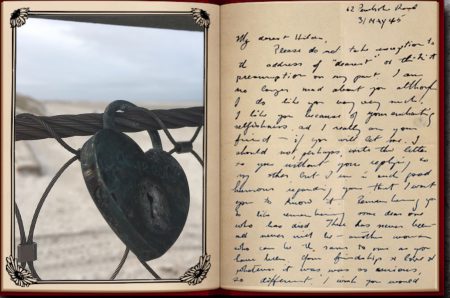 62 Road
3/ May 45
My dearest
Please do not take exception to
the address of "dearest" or think it
presumption on my part. I am
no longer mad about you although
I do like you very very much.
I like you because of your
selfishness, and I really am your
friend - if you will let me. I
should not perhaps write this letter
to you without your replying to
my other but I am in such good
humour regarding you that I want
you to know it. Remembering you
is like remembering some dear one
who has died. There has never been
and never will be - another woman
who can be the same to me as you
have been. Your friendship & love &
whatever it was was so curious,
so different. I wish you would